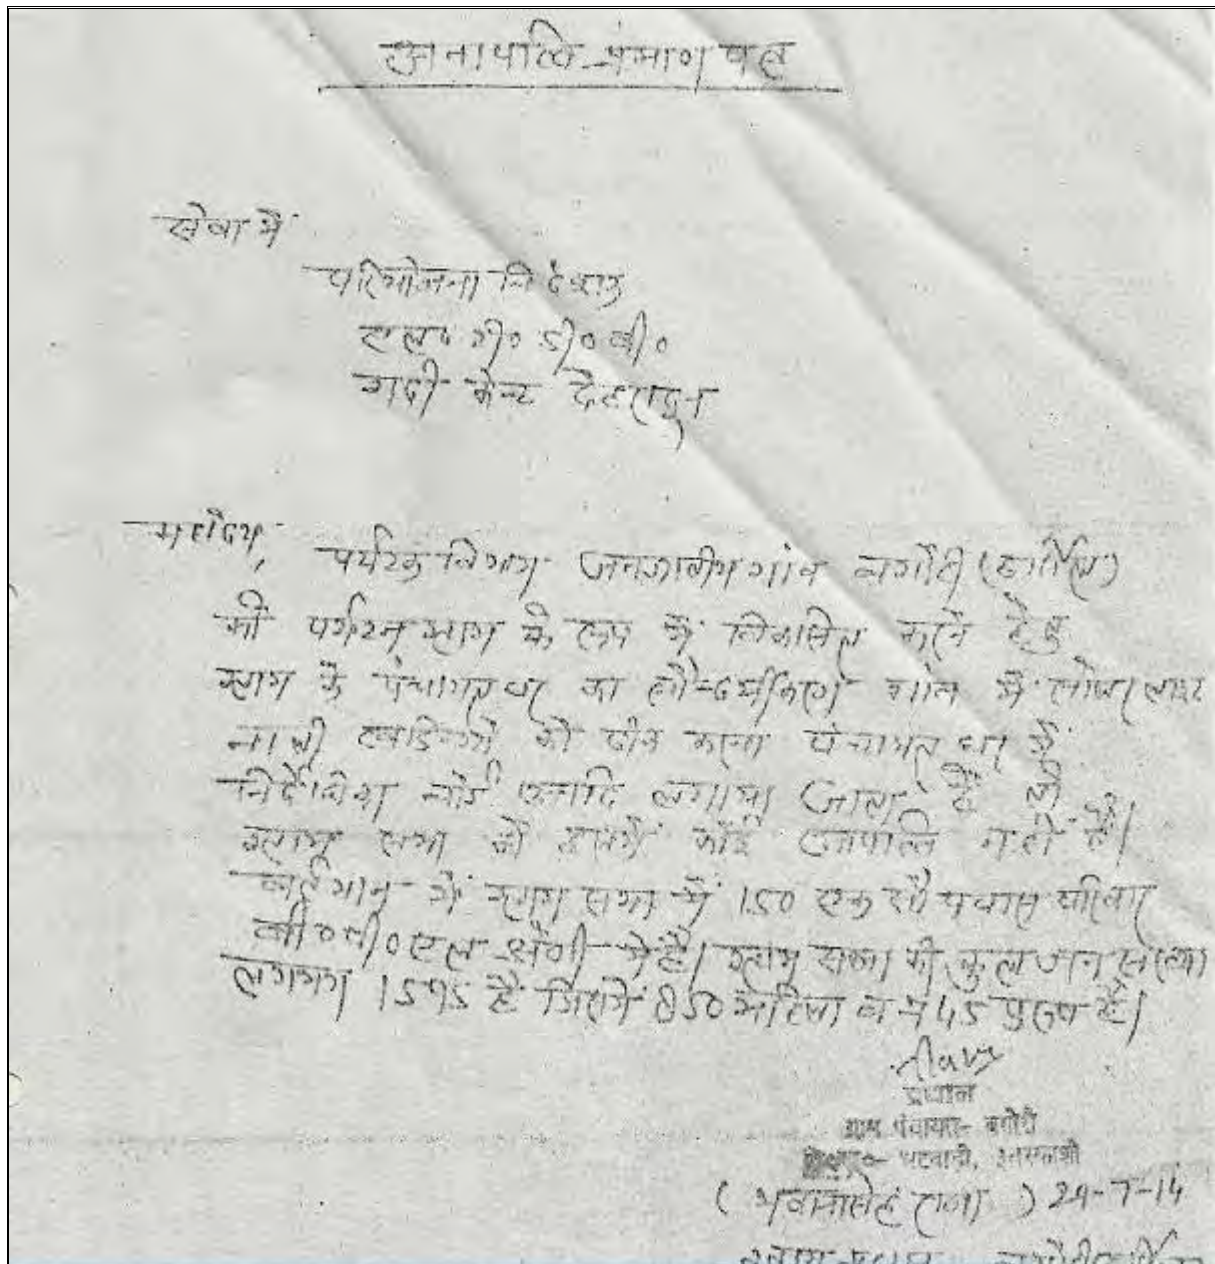 अनापत्ति प्रमाण पत्र
सेवा में
परियोजना निदेशक
गढी कैन्ट देहरादून
महोदय,
पर्यटक विभाग जनजातीय गांव बगोरी (हर्षिल)
को पर्यटन ग्राम के रूप में विकसित करने हेतु
ग्राम के पंचायत घर का सौन्दर्यीकरण गांव में सोलर लाईट
को ठीक करना पंचायत घर में
बोर्ड इत्यादि लगाया जाता है तो
ग्राम सभा को इसमें कोई आपत्ति नहीं है।
वर्तमान में ग्राम सभा में 150 एक सौ पचास परिवार
बी०पी०एल श्रेणी में है। ग्राम सभा की कुल जन संख्या
लगभग 1595 है जिसमें 850 महिला व 745 पुरूष है।
प्रधान
ग्राम पंचायत- बगोरी
भटवाडी, उत्तरकाशी
( भवानसिंह राणा ) 29-7-14